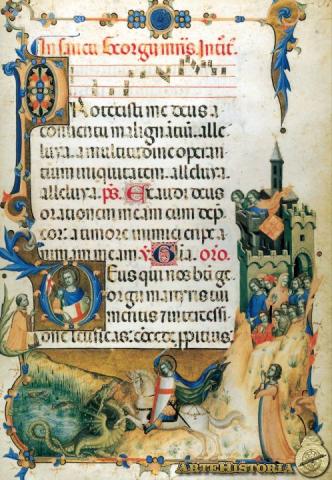 In sancti Georgij mris. Introit.
Protexisti me deus a
conuentu malignantiũ. alle
luya. a multitudine operan
tium iniquitatem. alleluya.
alleluya. ps. Exaudi deus
orationem meam cum dep̃
cor: a timore inimici eripe a
nimam meam. V. Gl̃ia. or̃o.
Deus qui nos b̃ti ge
orgij martyris tui
meritis 7 intercessi
one letificas: concede propitius:
ARTEHISTORIA